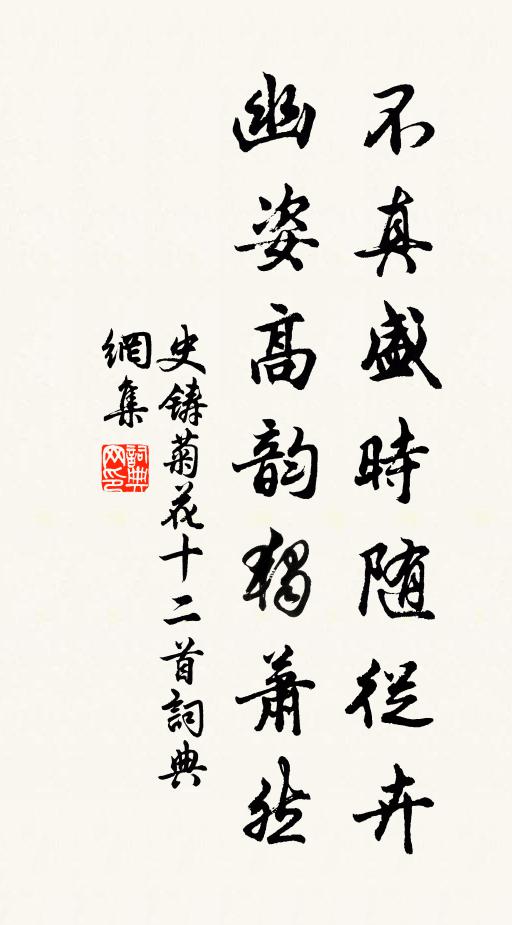 不真盛時随從卉
幽姿高韵獨蕭然
史鑄菊花十二首詞典
網集
詞典
网印